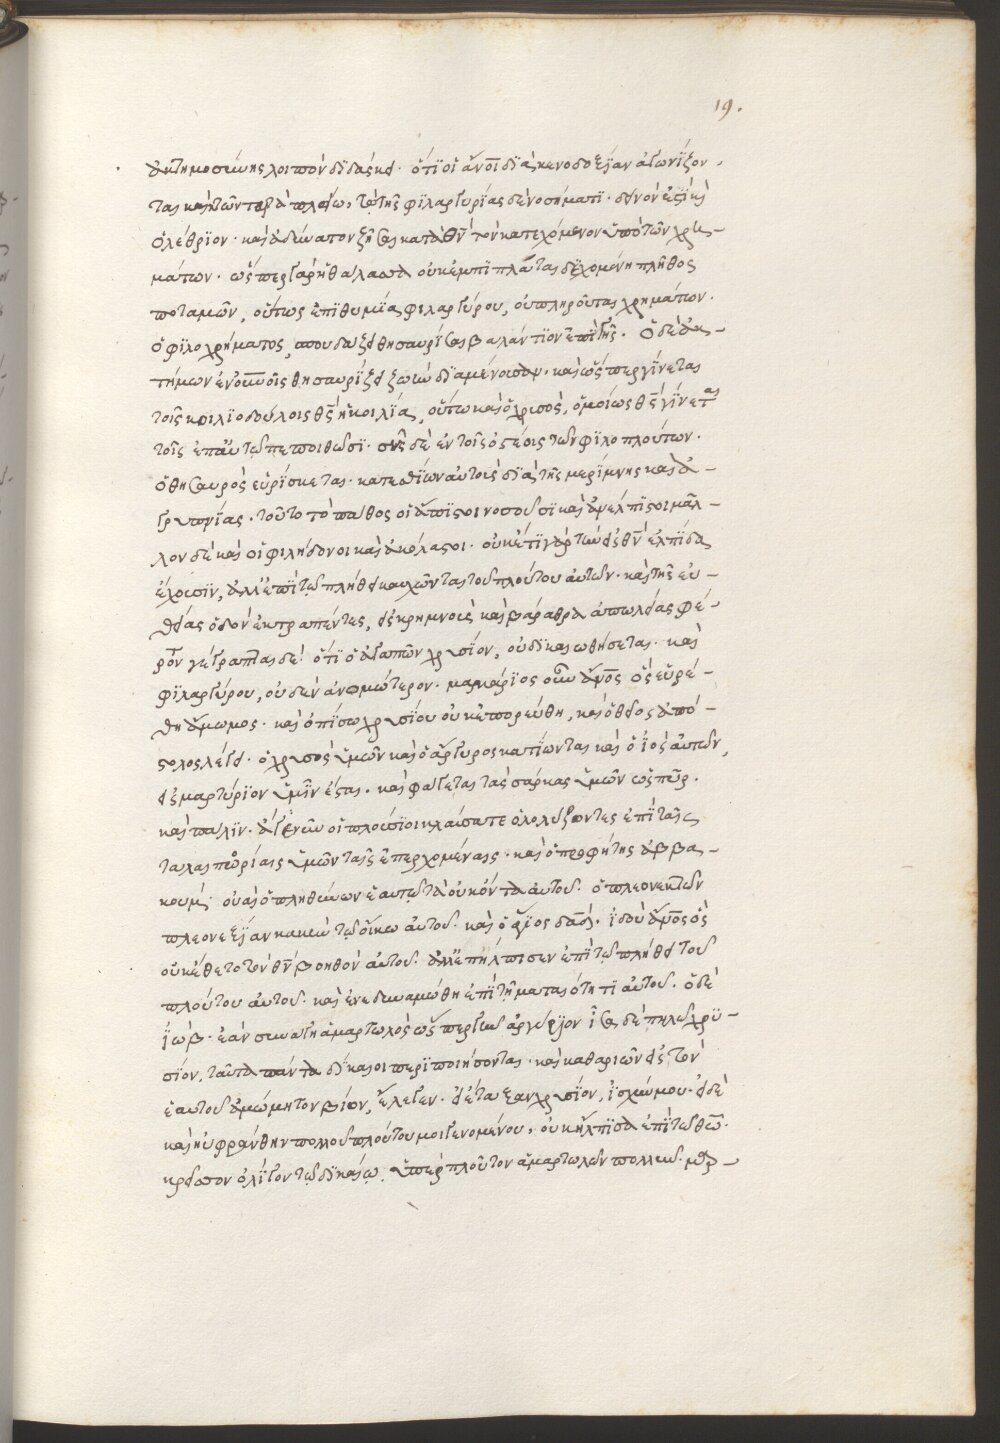 19.
ἀκτημοσύνης λοιπὸν διδάσκει· ὅτι οἱ ἄνοι διὰ κενοδοξίαν ἀγωνίζον-
ται καὶ τῶν παρὰ πλείω, τὸ τῆς φιλαργυρίας δὲ νοσήματι· δεινόν ἐστι καὶ
ὀλέθριον· καὶ ἀδύνατον ζῆσαι κατὰ θν τὸν κατεχόμενον ὑπὸ τῶν χρη-
μάτων· ὥσπερ γὰρ ἡ θάλασσα οὐκ ἐμπίπλαται δεχομένη πλῆθος
ποταμῶν, οὕτως ἐπιθυμία φιλαργύρου, οὐ πληροῦται χρημάτων·
ὁ φιλοχρήματος, σπουδάζει θησαυρίσαι βαλάντιον ἐπὶ γῆς· ὁ δὲ ἀκ-
τήμων ἐν οὐνοῖς θησαυρίζει ζωὴν διαμένουσαν· καὶ ὥσπερ γίνεται
τοῖς κοιλιοδούλοις θς ἡ κοιλία, οὕτω καὶ ὁ χρυσὸς, ὁμοίως θς γίνεται
τοῖς ἐπ' αὐτῷ πεποιθῶσι· σὴς δὲ ἐν τοῖς ὀστέοις τῶν φιλοπλούτων·
ὁ θησαυρὸς εὑρίσκεται· κατεσθίων αὐτοὺς διὰ τῆς μερίμνης καὶ ἀ-
γρυπνίας· τοῦτο τὸ πάθος οἱ ἄπιστοι νοσοῦσι καὶ ἀνελπιστοι μᾶλ-
λον δὲ καὶ οἱ φιλήδονοι καὶ ἀκόλαστοι· οὐκέτι γὰρ τὴν εἰς θν ἐλπίδα
ἔχουσιν, ἀλλ' ἐπὶ τῷ πλήθει καυχῶνται τοῦ πλούτου αὐτῶν· καὶ τῆς εὐ-
θείας ὁδοῦ ἐκτραπέντες, εἰς κρημνοὺς καὶ βάραθρα ἀπωλείας φέ-
ρον γέγραπται δέ! ὅτι ὁ ἀγαπῶν χρυσίον, οὐ δικαιωθήσεται· καὶ
φιλαργύρου, οὐδὲν ἀνομώτερον· μακάριος οὖν ἄνος ὃς εὑρέ-
θη ἄμωμος· καὶ ὀπίσω χρυσίου οὐκ ἐπορεύθη, καὶ ὁ θεῖος ἀπό-
στολος λέγει· ὁ χρυσὸς ὑμῶν καὶ ὁ ἄργυρος κατίωνται καὶ ὁ ἰὸς αὐτῶν,
εἰς μαρτύριον ὑμῖν ἔσται· καὶ φάγεται τὰς σάρκας ὑμῶν ὡς πῦρ·
καὶ πάλιν· ἄγε νῦν οἱ πλούσιοι κλαύσατε ὀλολύζοντες ἐπὶ ταῖς
ταλαιπωρίαις ὑμῶν ταῖς ἐπερχομέναις· καὶ ὁ προφήτης ἀββα-
κούμ· οὐαὶ ὁ πληθύνων ἑαυτῷ τὰ οὐκ ὄντα αὐτοῦ· ὁ πλεονεκτῶν
πλεονεξίαν κακὴν τῷ οἴκω αὐτοῦ· καὶ ὁ θεῖος δαδ· ἰδοὺ ἄνος ὃς
οὐκ ἔθετο τὸν θν βοηθὸν αὐτοῦ· ἀλλ' ἐπήλπισεν ἐπὶ τῷ πλήθει τοῦ
πλούτου αὐτοῦ· καὶ ἐνεδυναμώθη ἐπὶ τῇ ματαιότητι αὐτοῦ· ὁ δὲ
ἰώβ· ἐὰν συναγη ἁμαρτωλὸς ὥσπερ γῆν ἀργύριον ἶσα δὲ πηλῷ χρυ-
σίον, ταῦτα πάντα δίκαιοι περιποιήσονται· καὶ καθαριῶν εἰς τὸν
ἑαυτοῦ ἀμώμητον βίον, ἔλεγεν· εἰ ἔταξα χρυσίον, ἰσχύν μου· εἰ δὲ
καὶ ηὐφράνθην πολλοῦ πλούτου μοι γενομένου, οὐκ ἤλπισα ἐπὶ τῷ θεῷ·
κρεῖσσον ὀλίγον τῷ δικαίῳ, ὑπὲρ πλοῦτον ἁμαρτωλῶν πολλύν·